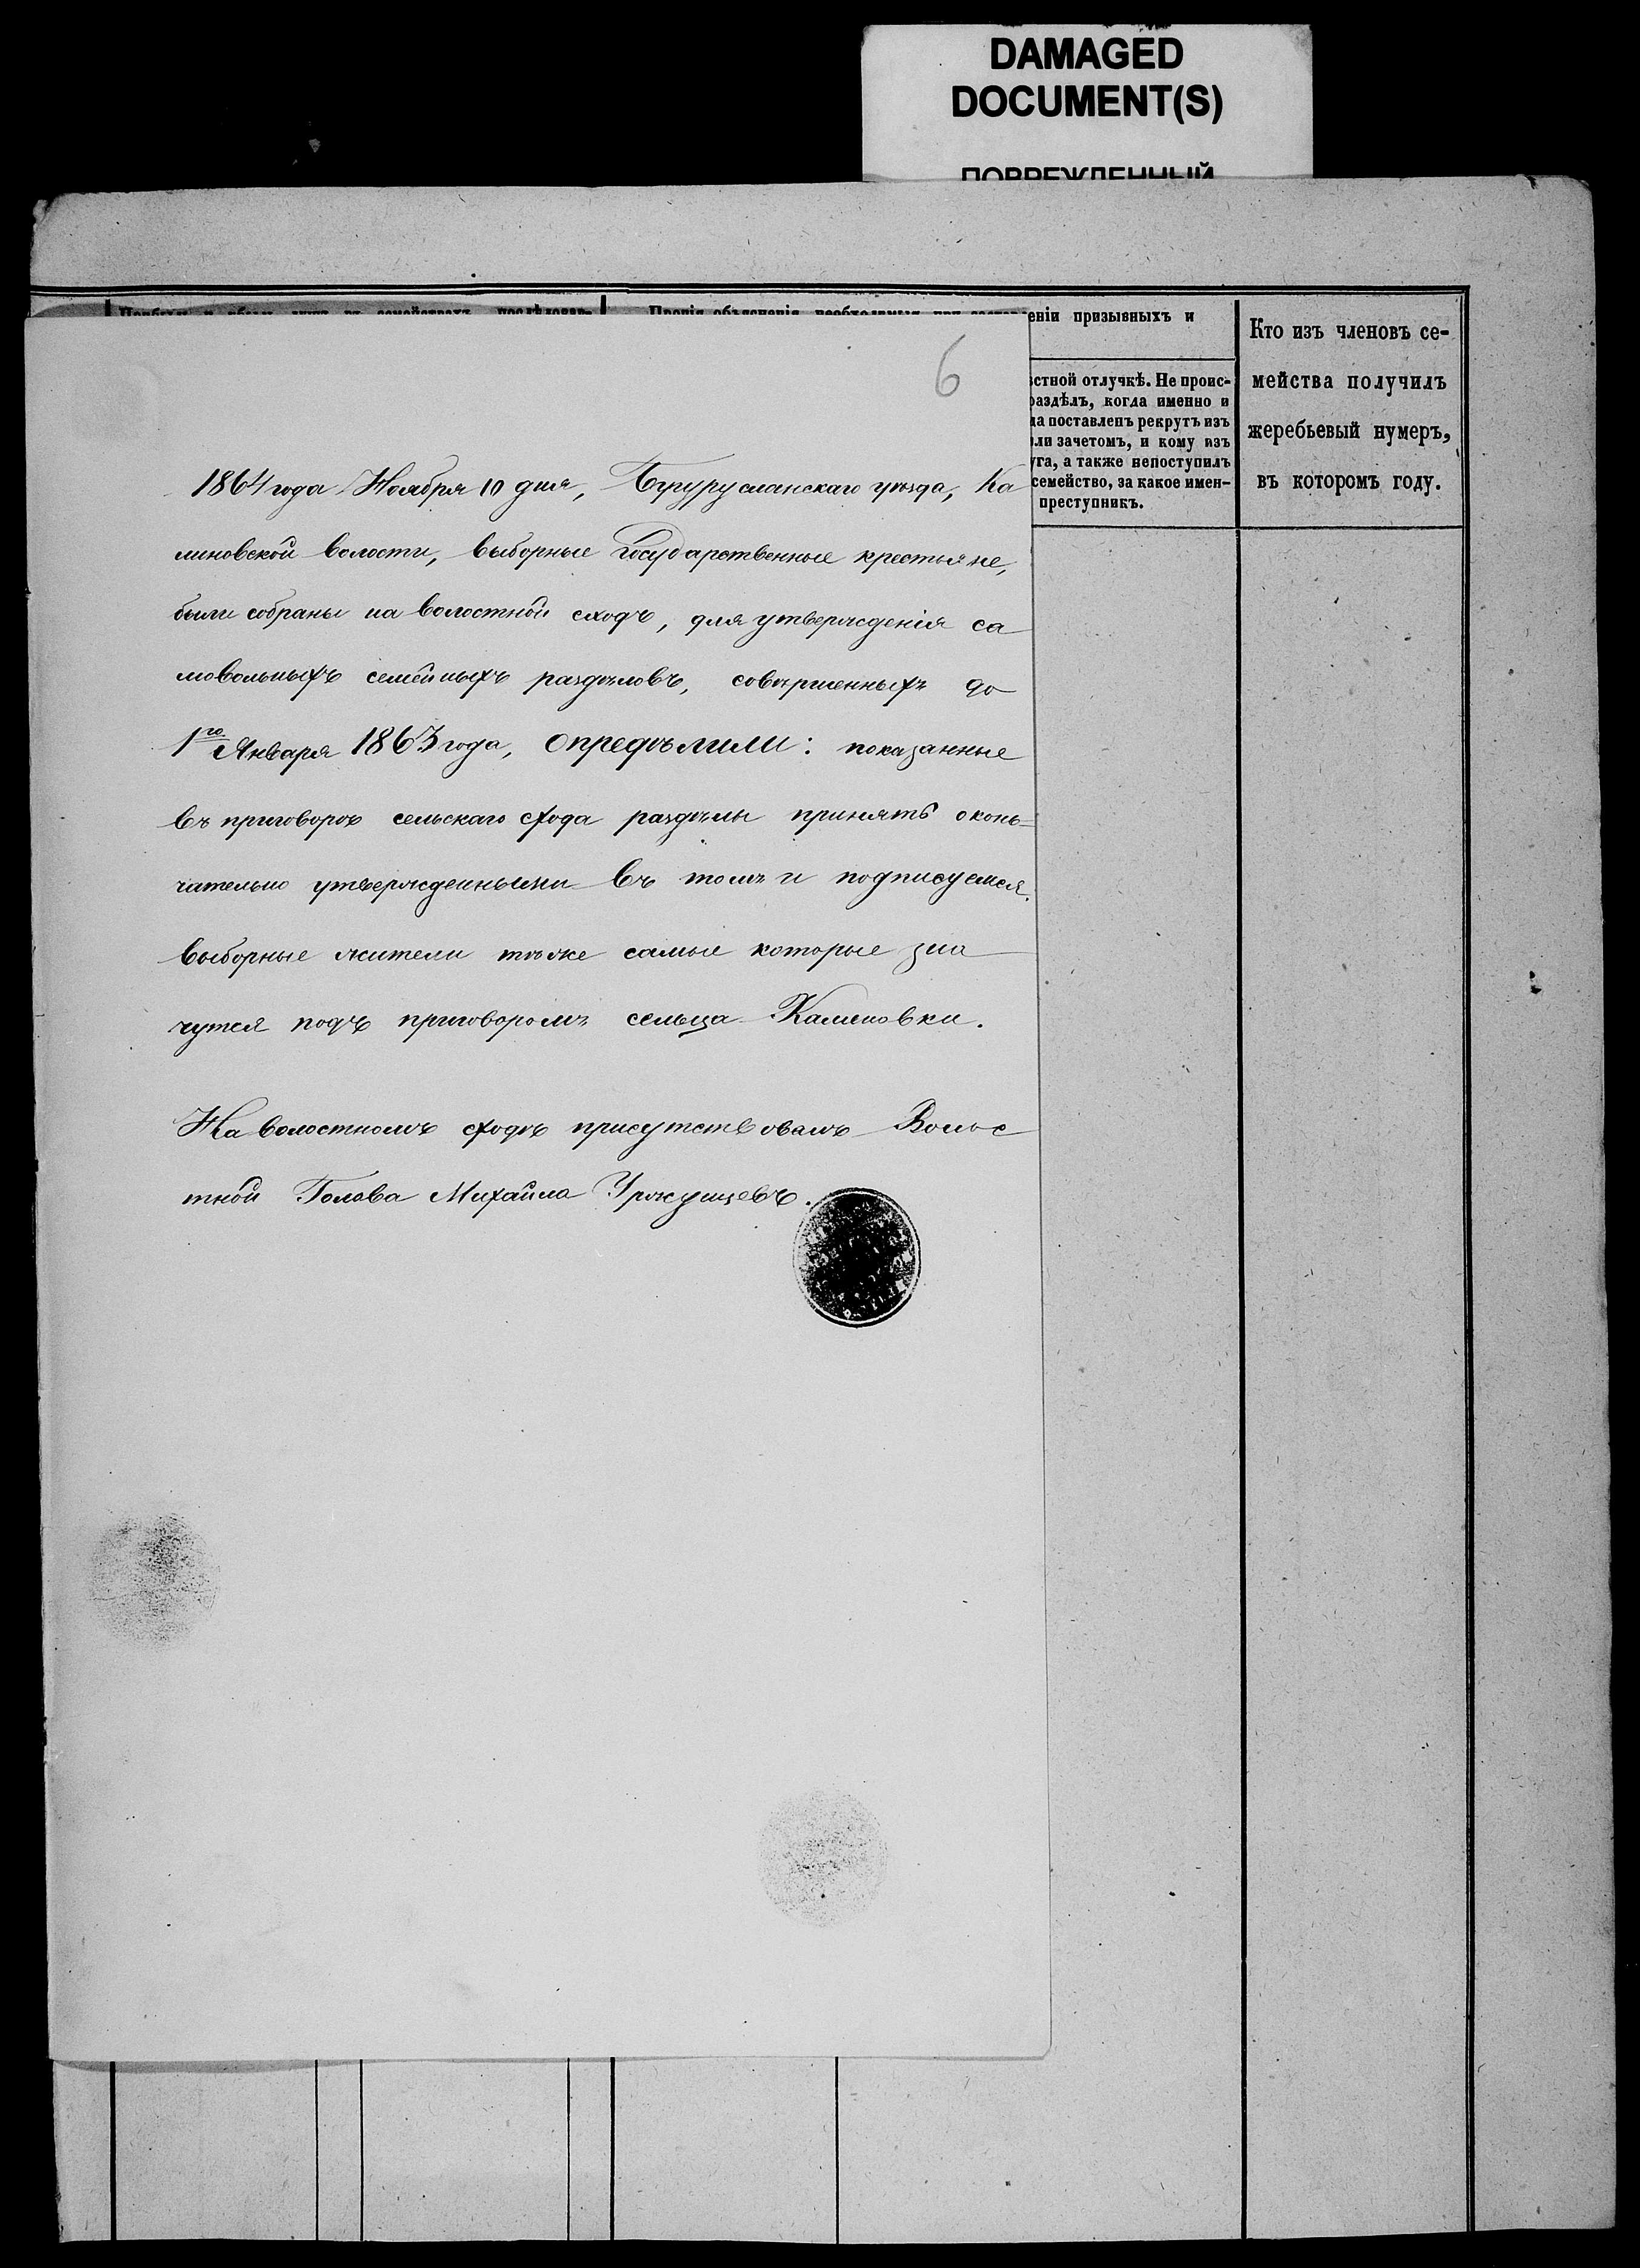 DAMAGED
DOCUMENT(S)
ПОВРЕЖДЕННЫЙ
еніи призывныхъ и
стной отлучкѣ. Не проис-
раздѣлъ, когда именно и
на поставленъ рекрутъ изъ
ли зачетомъ, и кому изъ
уга, а также непоступилъ
семейство, за какое имен-
преступникъ.
Кто изъ членовъ се-
мейства получилъ
жеребьевый нумеръ,
въ которомъ году.
6
1864 года Ноября 10 дня, Бугурусланскаго уѣзда, Ка
линовской волости, выборные Государственные крестьяне,
были собраны на волостной сходъ, для утвержденія са
мовольныхъ семейныхъ раздѣловъ, совершенныхъ до
1го Января 1863 года, опредѣлили: показанные
въ приговорѣ сельскаго схода раздѣлы принять оконь-
чательно утвержденными въ томъ и подписуемся.
выборные жители тѣже самые которые зна
чутся подъ приговоромъ сельца Калиновки.
На волостномъ сходѣ присутствовалъ Волос
тной Голова Михайла